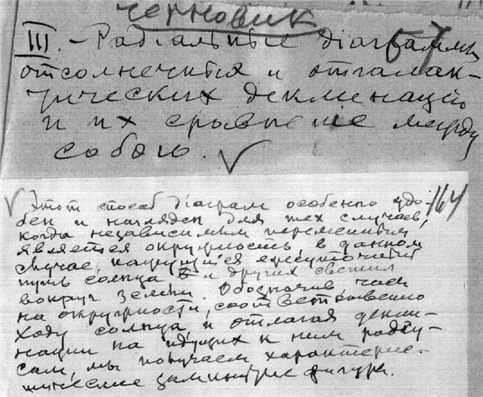 черновик
III. - Радіальные діаграммы
отсолнечныя и отгалак-
тических деклинацій
и их сравненіе между
собою. √
√ Этот способ діаграм особенно удо- 164
бен и нагляден для тех случаев,
когда независимым переменным
является окружность, в данном
случае, кажущийся ежесуточный
путь солнца и других светил
вокруг земли. Обозначив часы
на окружности, соответственно
ходу солнца, и отлагая декли-
нации на идущих к ним радіу-
сам, мы получаем характерис-
тические замкнутые фигуры.